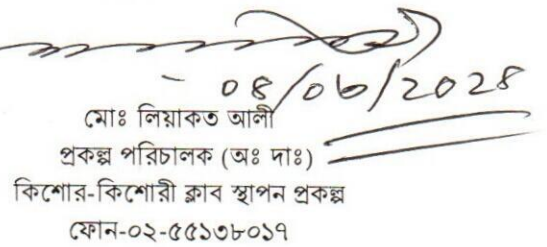 ০৪/০৬/২০২৪
মোঃ লিয়াকত আলী
প্রকল্প পরিচালক (অঃ দাঃ)
কিশোর-কিশোরী ক্লাব স্থাপন প্রকল্প
ফোন-০২-৫৫১৩৮০১৭